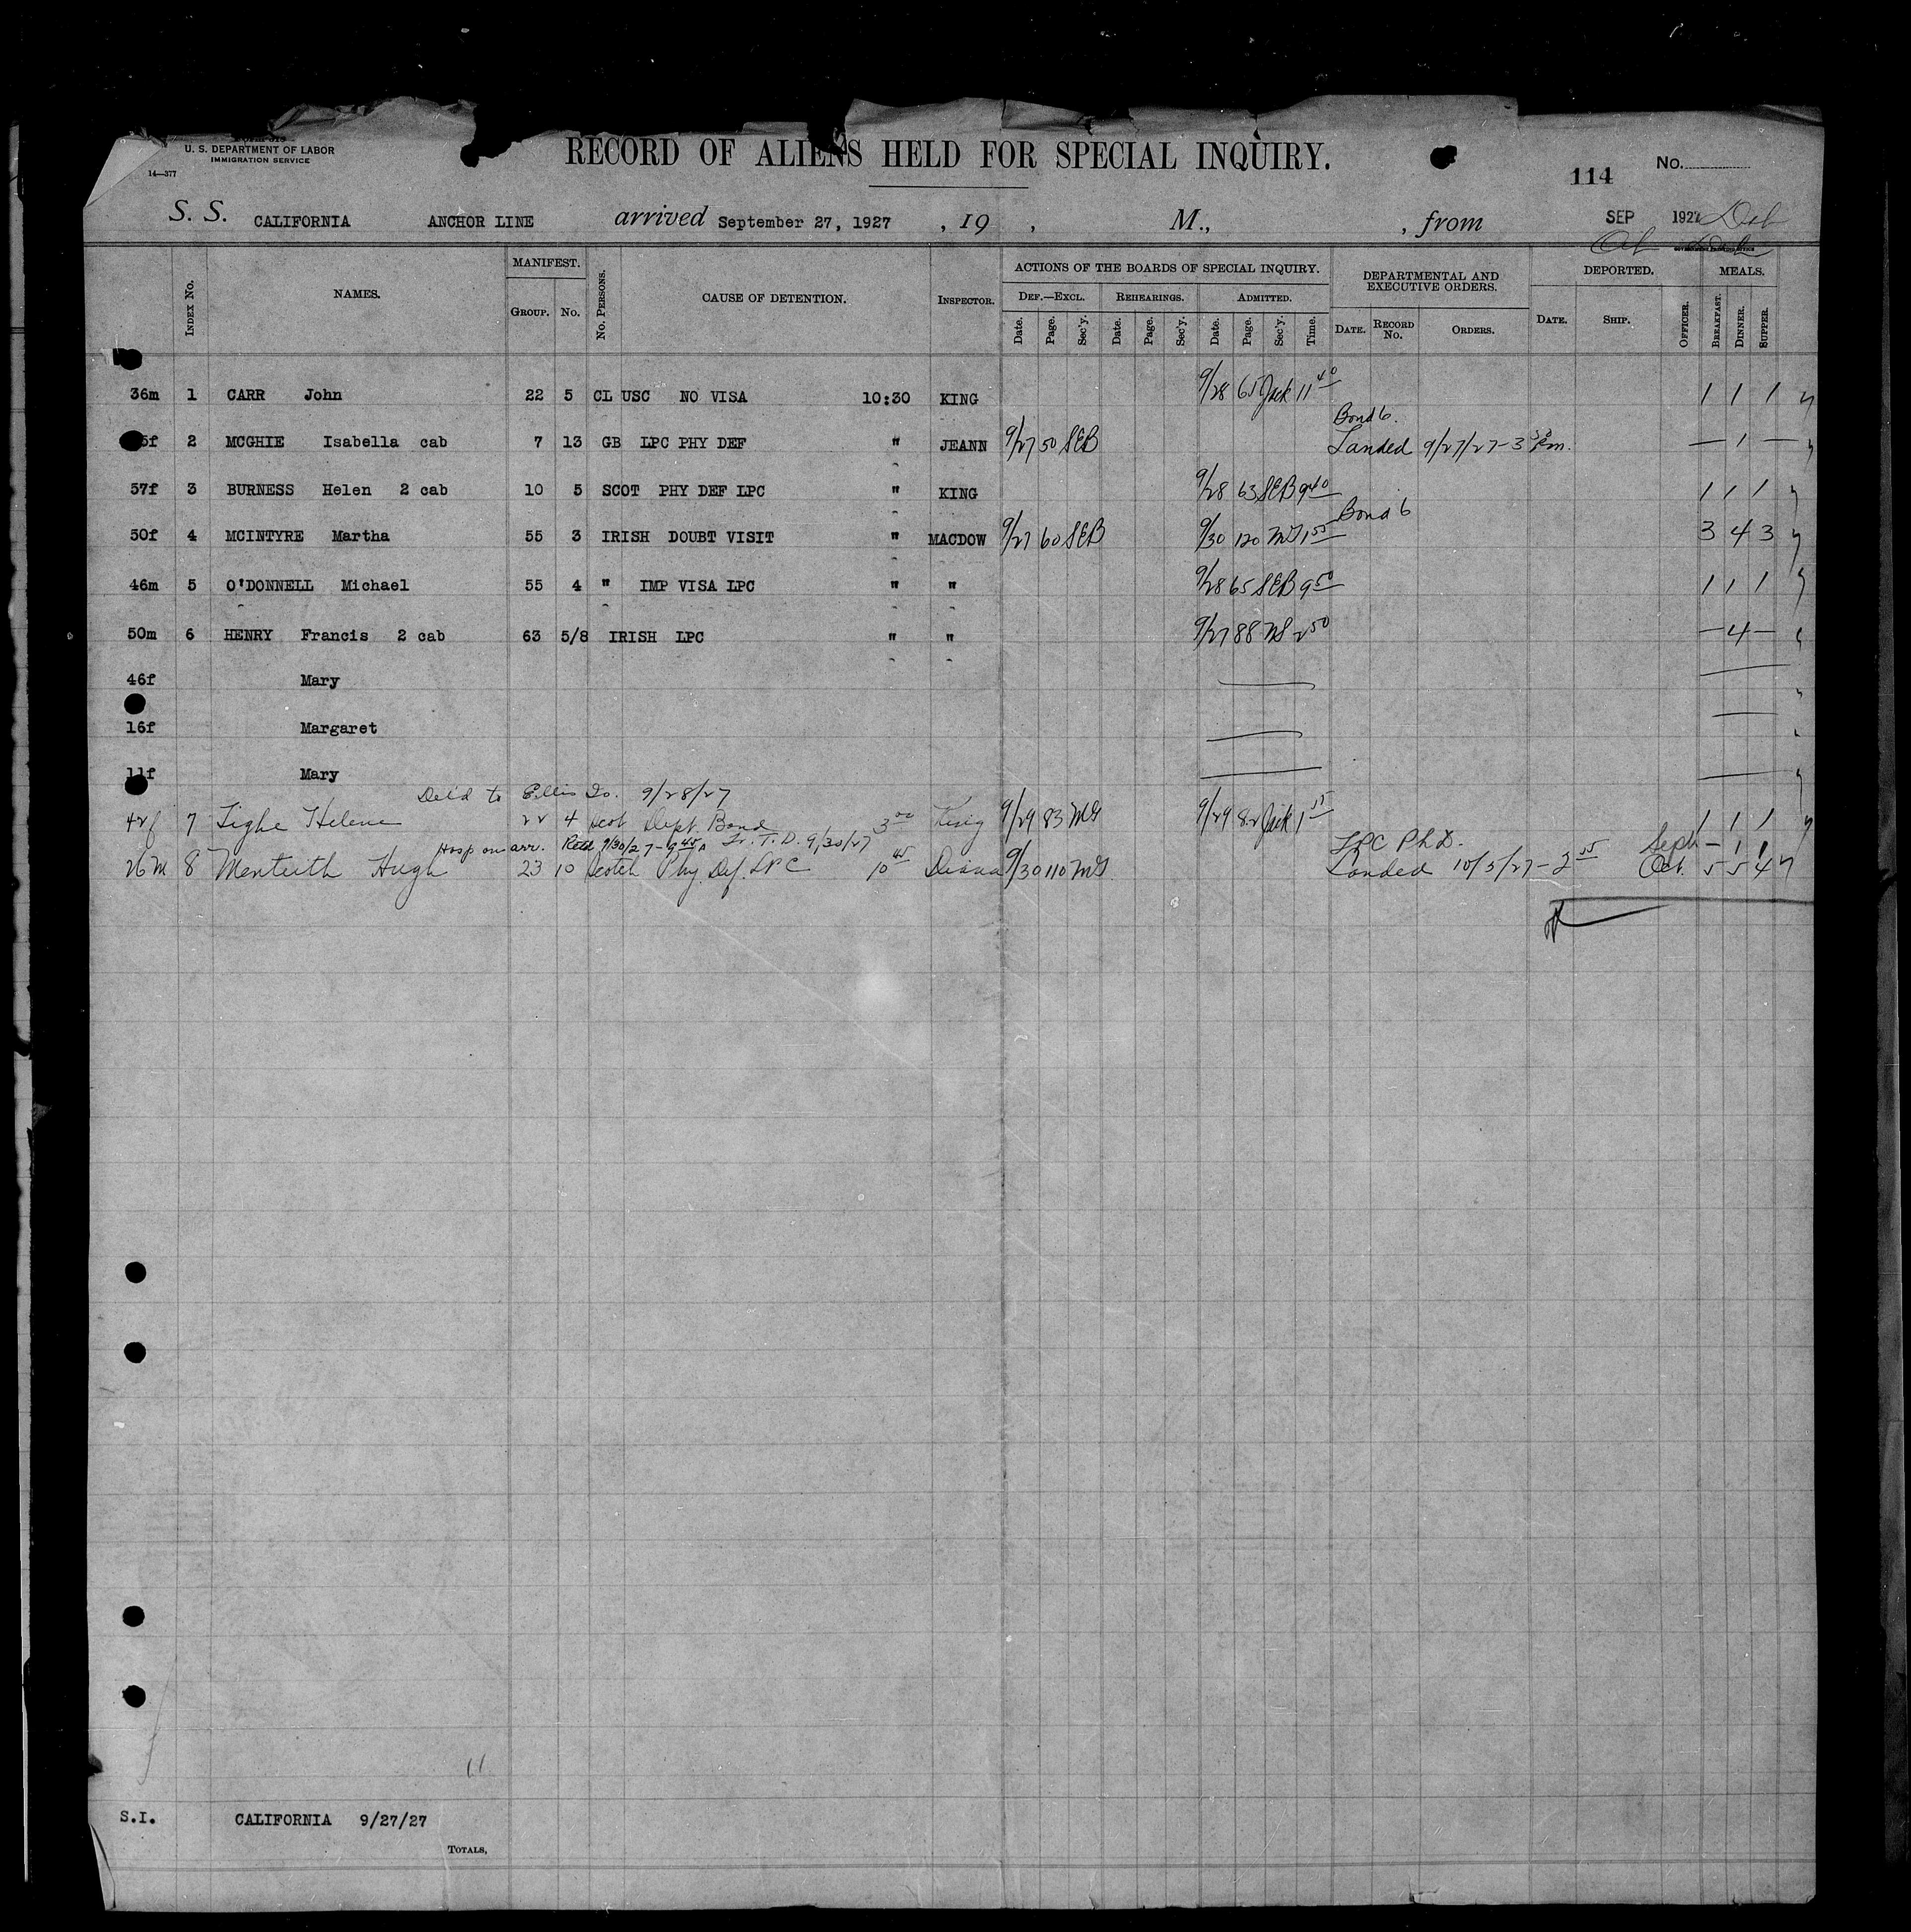 U. S. DEPARTMENT OF LABOR
IMMIGRATION SERVICE
14—377
RECORD OF ALIENS HELD FOR SPECIAL INQUIRY.
114 No.
S. S. CALIFORNIA ANCHOR LINE arrived September 27, 1927 , 19 , M., , from SEP 1927
MANIFEST. ACTIONS OF THE BOARDS OF SPECIAL INQUIRY. DEPARTMENTAL AND EXECUTIVE ORDERS. DEPORTED. MEALS.
Index No. NAMES. Group. No. No. Persons. CAUSE OF DETENTION. Inspector. Def.—Excl. Rehearings. Admitted.
Date. Page. Sec'y. Date. Page. Sec'y. Date. Page. Sec'y. Time. Date. Record No. Orders. Date. Ship. Officer. Breakfast. Dinner. Supper.
36m 1 CARR John 22 5 CL USC NO VISA 10:30 KING 9/28 65 Jack 11 40 1 1 1
Bond 6.
5f 2 MCGHIE Isabella cab 7 13 GB LPC PHY DEF " JEANN 9/27 50 SEB Landed 9/27/27 - 3 pm. — 1 —
57f 3 BURNESS Helen 2 cab 10 5 SCOT PHY DEF LPC " KING 9/28 63 SEB 9 40 1 1 1
Bond 6
50f 4 MCINTYRE Martha 55 3 IRISH DOUBT VISIT " MACDOW 9/27 60 SEB 9/30 120 1 55 3 4 3
46m 5 O'DONNELL Michael 55 4 " IMP VISA LPC " " 9/28 65 SEB 9 50 1 1 1
50m 6 HENRY Francis 2 cab 63 5/8 IRISH LPC " " 9/27 88 2 50 — 4 —
46f Mary
16f Margaret
11f Mary
Del'd to Ellis Is. 9/28/27
42f 7 Tighe Helene 22 4 Scot Dept Bond 3 00 King 9/29 83 9/29 82 Jack 1 55 1 1 1
Hosp on arr. Reld 9/30/27 - 9 45 A Tr. T. D. 9/30/27 LPC Ph D. Sept — 1 1
26m 8 Menteith Hugh 23 10 Scotch Phy. Def. LPC 10 45 Diana 9/30 110 Landed 10/5/27 - 2 55 Oct. 5 5 4
11
S.I. CALIFORNIA 9/27/27
Totals,